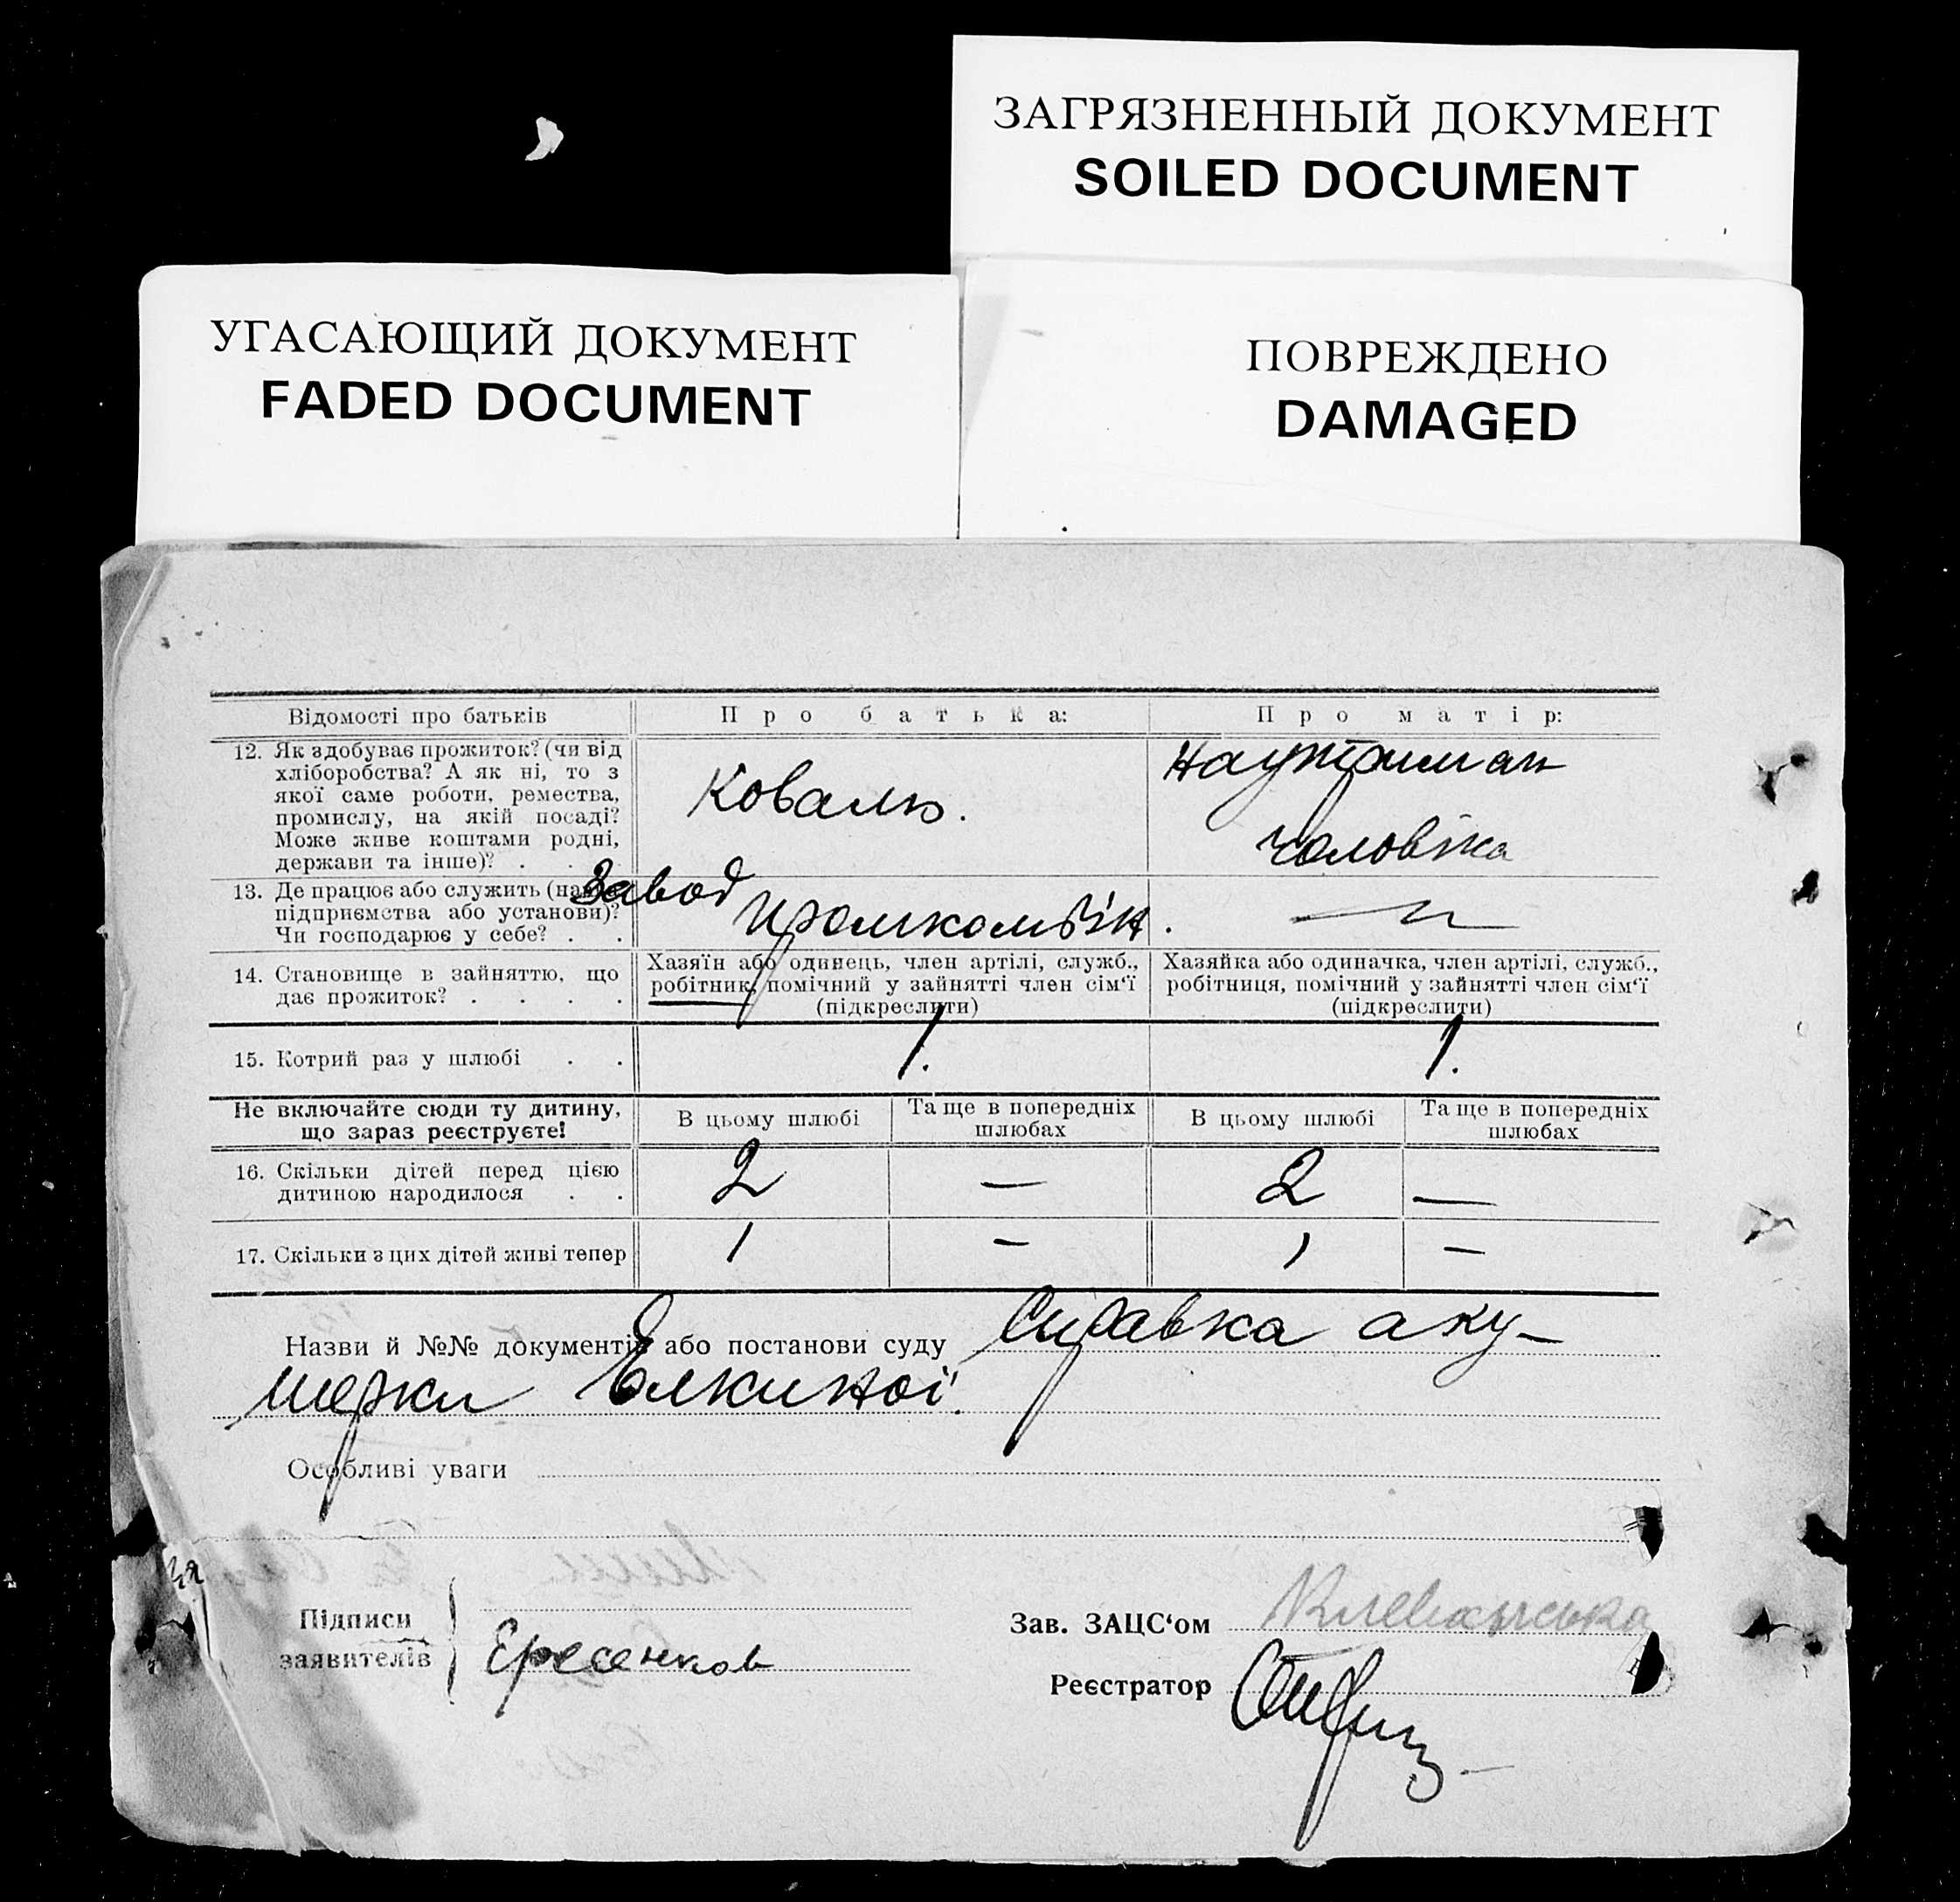 ЗАГРЯЗНЕННЫЙ ДОКУМЕНТ
SOILED DOCUMENT
УГАСАЮЩИЙ ДОКУМЕНТ
FADED DOCUMENT
ПОВРЕЖДЕНО
DAMAGED
Відомості про батьків
Про батька:
Про матір:
12. Як здобуває прожиток? (чи від
хліборобства? А як ні, то з
якої саме роботи, ремества,
промислу, на якій посаді?
Може живе коштами родні,
держави та інше)? . . .
Коваль.
На утриман
чоловіка
13. Де працює або служить (назва
підприємства або установи)?
Чи господарює у себе? . .
Завод
Промкомбін.
14. Становище в зайняттю, що
дає прожиток? . . . .
Хазяїн або одинець, член артілі, служб.,
робітник, помічний у зайнятті член сім‘ї
(підкреслити)
Хазяйка або одиначка, член артілі, служб.,
робітниця, помічний у зайнятті член сім‘ї
(підкреслити)
15. Котрий раз у шлюбі . .
1.
1.
Не включайте сюди ту дитину,
що зараз реєструєте!
В цьому шлюбі
Та ще в попередніх
шлюбах
В цьому шлюбі
Та ще в попередніх
шлюбах
16. Скільки дітей перед цією
дитиною народилося . .
2
—
2
—
17. Скільки з цих дітей живі тепер
1
—
1
—
Назви й №№ документів або постанови суду Справка аку-
шерки Елкиної.
Особливі уваги
Підписи
заявителів
Ересенков
Зав. ЗАЦС‘ом
Реєстратор